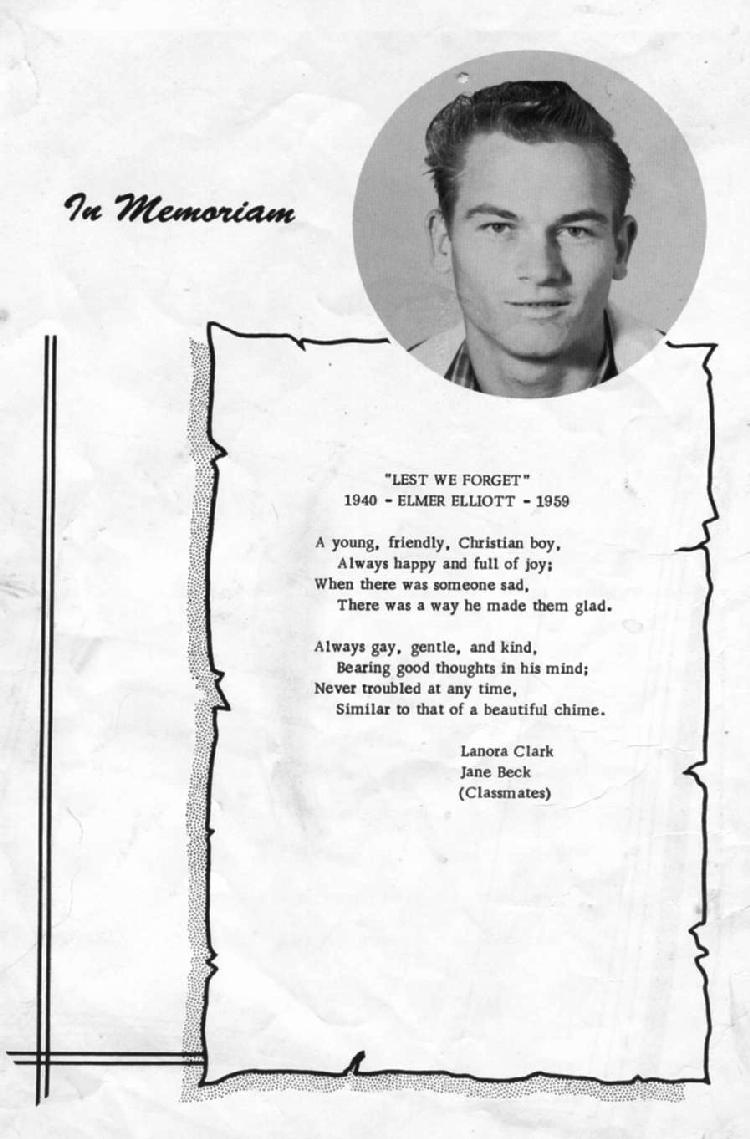 In Memoriam
"LEST WE FORGET"
1940 - ELMER ELLIOTT - 1959
A young, friendly, Christian boy,
Always happy and full of joy;
When there was someone sad,
There was a way he made them glad.
Always gay, gentle, and kind,
Bearing good thoughts in his mind;
Never troubled at any time,
Similar to that of a beautiful chime.
Lanora Clark
Jane Beck
(Classmates)